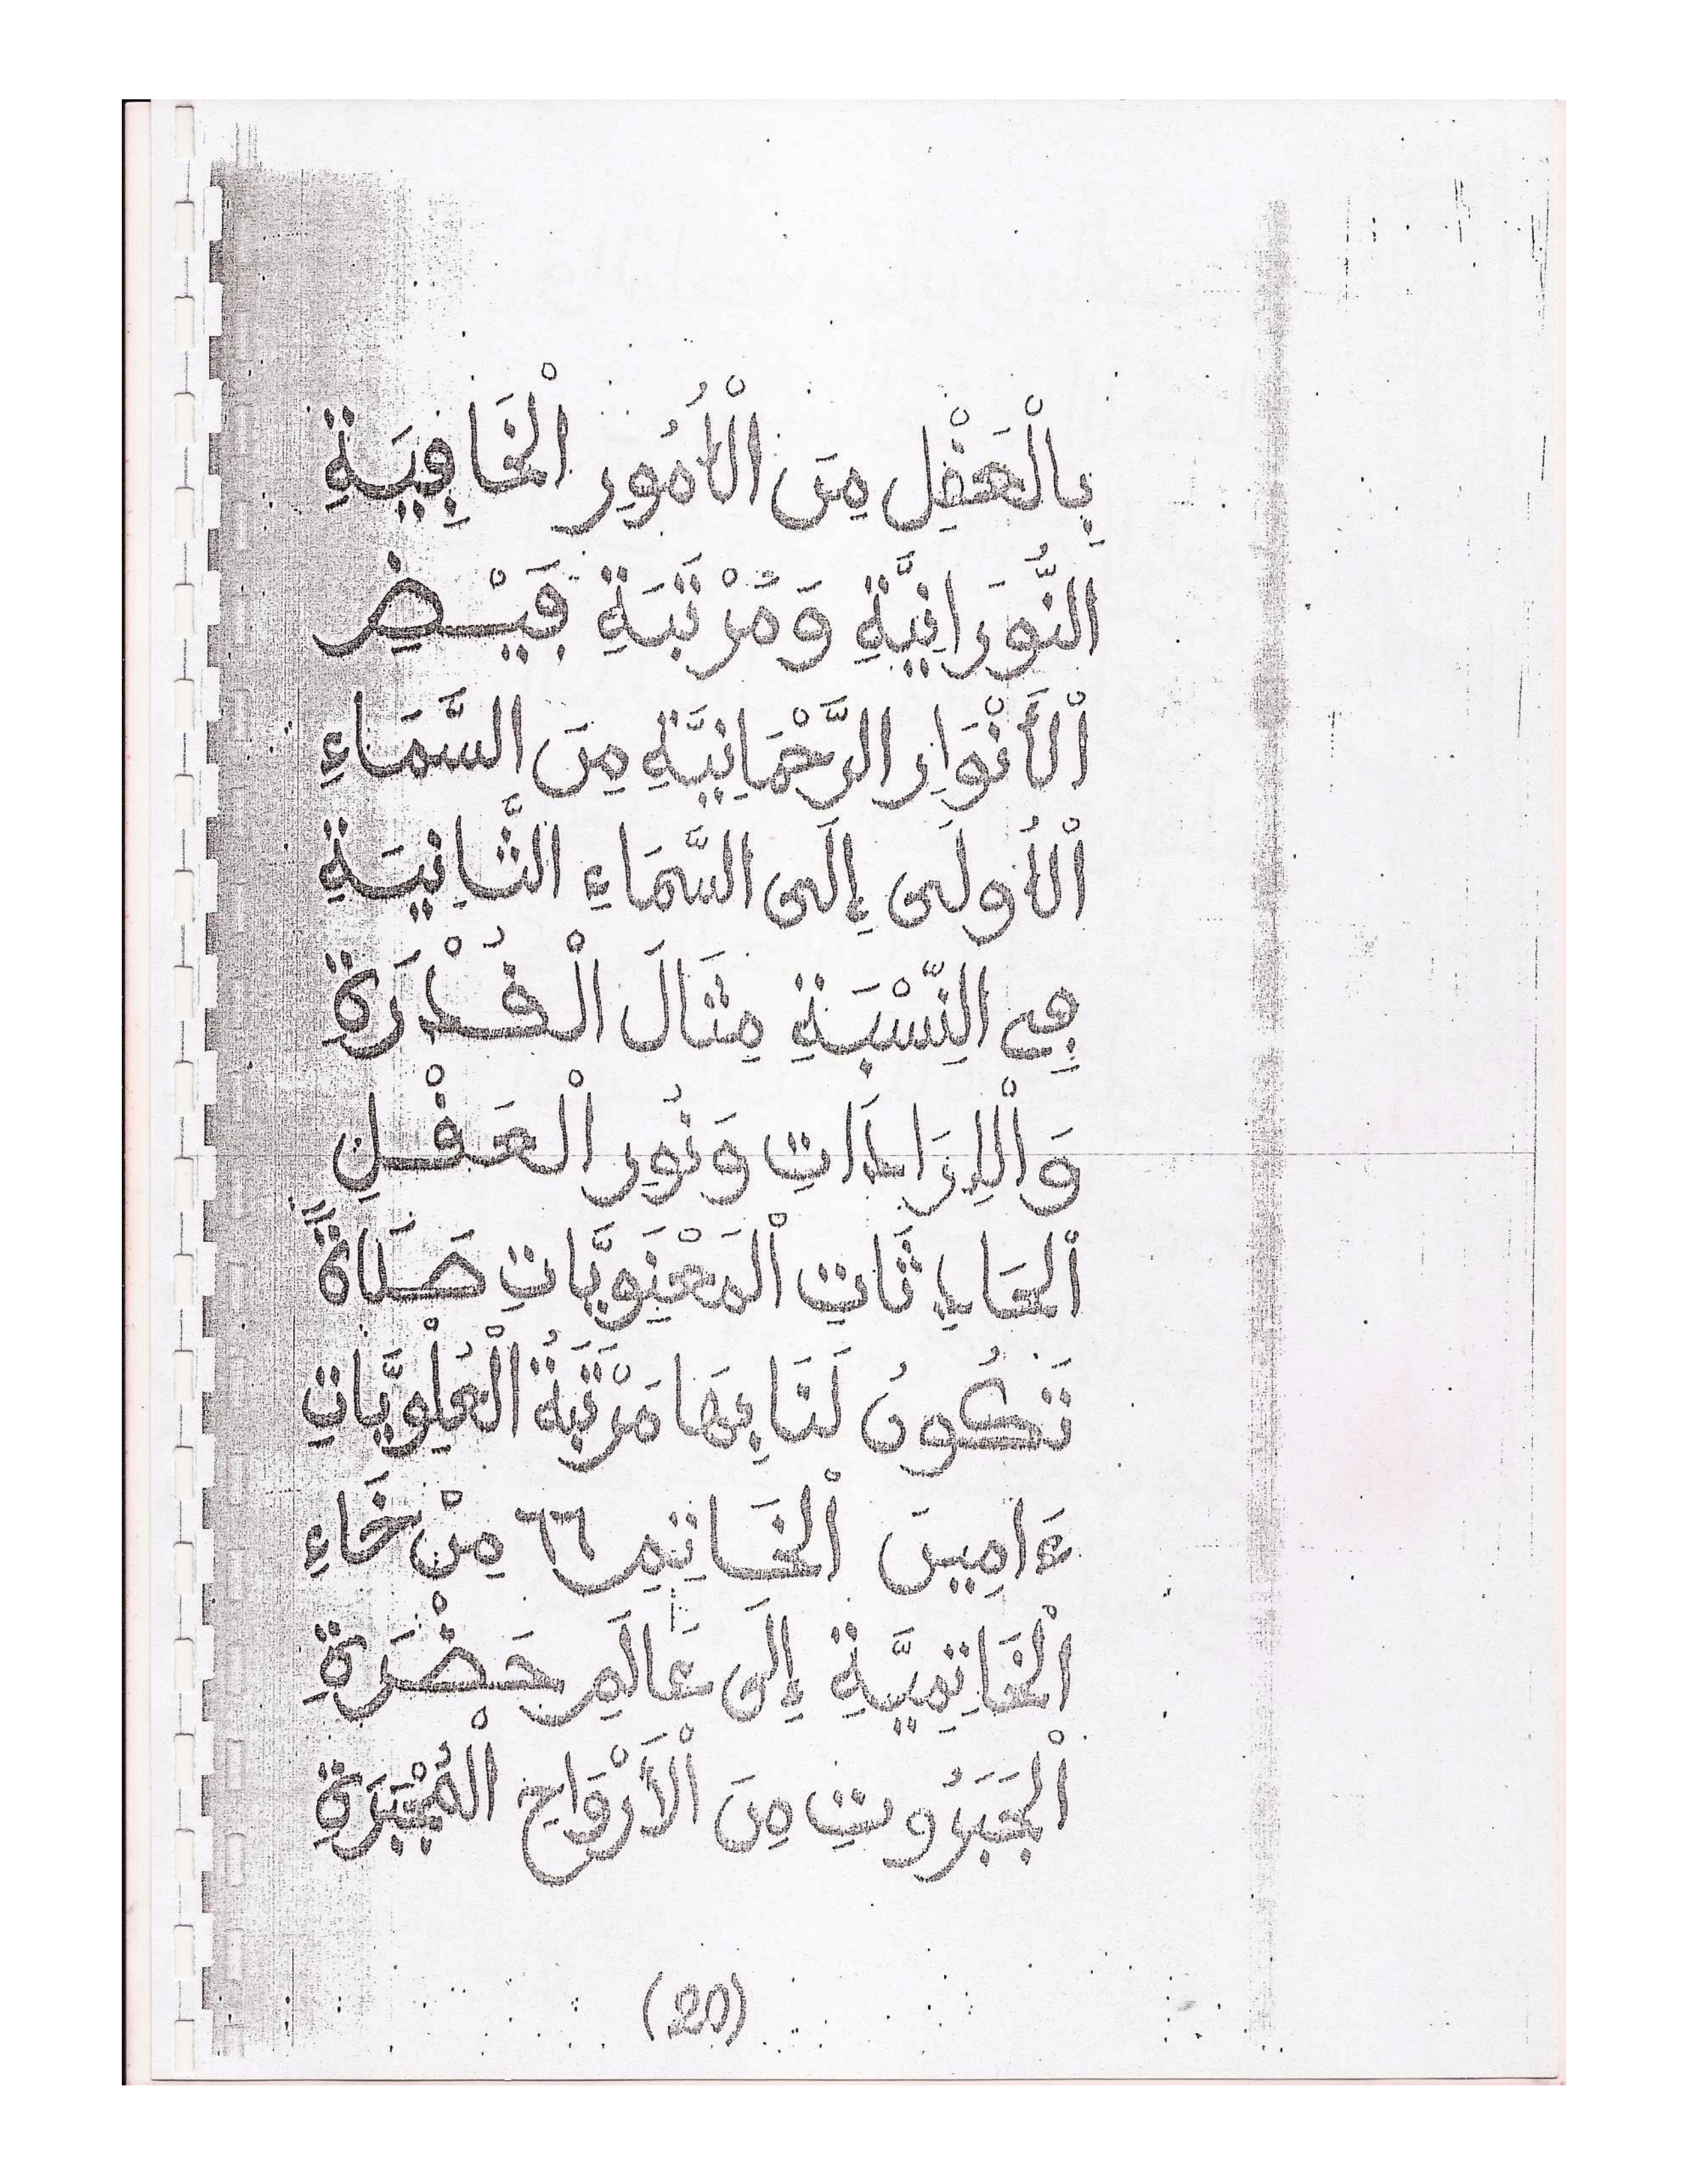 بِالْعَقْلِ مِنَ الْأُمُورِ الْخَافِيَةِ
النُّورَانِيَّةِ وَمَرْتَبَةِ فَيْضِ
اْلأَنْوَارِ الرَّحْمَانِيَّةِ مِنَ السَّمَاءِ
اْلأُولَى إِلَى السَّمَاءِ الثَّانِيَةِ
فِي النِّسْبَةِ مِثَالَ الْقُدْرَةِ
وَاْلِارَادَاتِ وَنُورِ الْعَقْلِ
اْلحَادِثَاتِ اْلمَعْنَوِيَّاتِ صَلَاةً
تَكُونُ لَنَا بِهَا مَرْتَبَةُ الْعُلْوِيَّاتِ
ءَامِينَ اْلخَاتِمِ ٦٦ مِنْ خَاءِ
اْلخَاتِمِيَّةِ إِلَى عَالَمِ حَضْرَةِ
اْلجَبَرُوتِ مِنَ اْلأَرْوَاحِ الْمُجْبَرَةِ
(20)